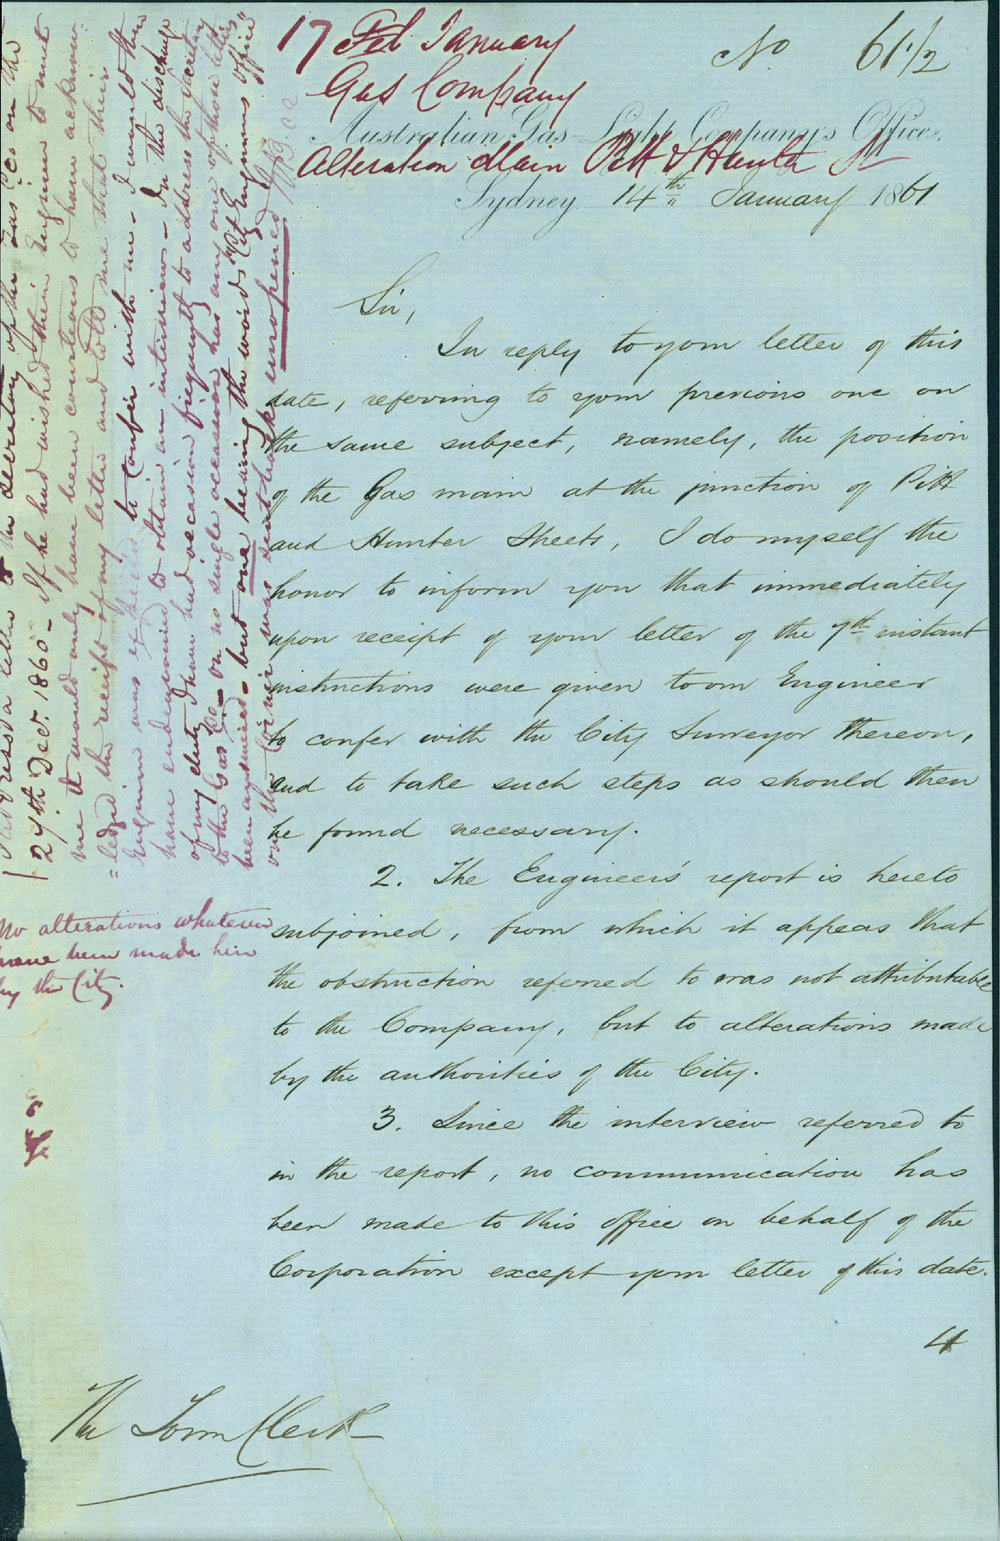 17 Feb January
No 61/2
Gas Company
Australian Gas-Light Company's Office,
Alteration Main Pitt & Hunter St
Sydney 14th January 1861
Sir,
In reply to your letter of this
date, referring to your previous one on
the same subject, namely, the position
of the Gas main at the junction of Pitt
and Hunter Streets, I do myself the
honor to inform you that immediately
upon receipt of your letter of the 7th instant
instructions were given to our Engineer
to confer with the City Surveyor thereon,
and to take such steps as should then
be found necessary.
2. The Engineer's report is hereto
subjoined, from which it appears that
the obstruction referred to was not attributable
to the Company, but to alterations made
by the authorities of the City.
3. Since the interview referred to
in the report, no communication has
been made to this office on behalf of the
Corporation except your letter of this date.
4
The Town Clerk
I addressed a letter to the Secretary of the Gas Co on the
27th Decr. 1860 - If he had wished their Engineer to meet
me it would only have been courteous to have acknow-
=ledged the receipt of my letter and told me that their
Engineer was expected to confer with me - I would then
have endeavoured to obtain an interview - In the discharge
of my duty I have had occasion frequently to address the Secretary
to the Gas Co - on no single occasion has any one of those letters
been answered - but one bearing the words "City Engineers Office"
on the corner was sent back unopened
No alterations whatever
have been made here
by the City.